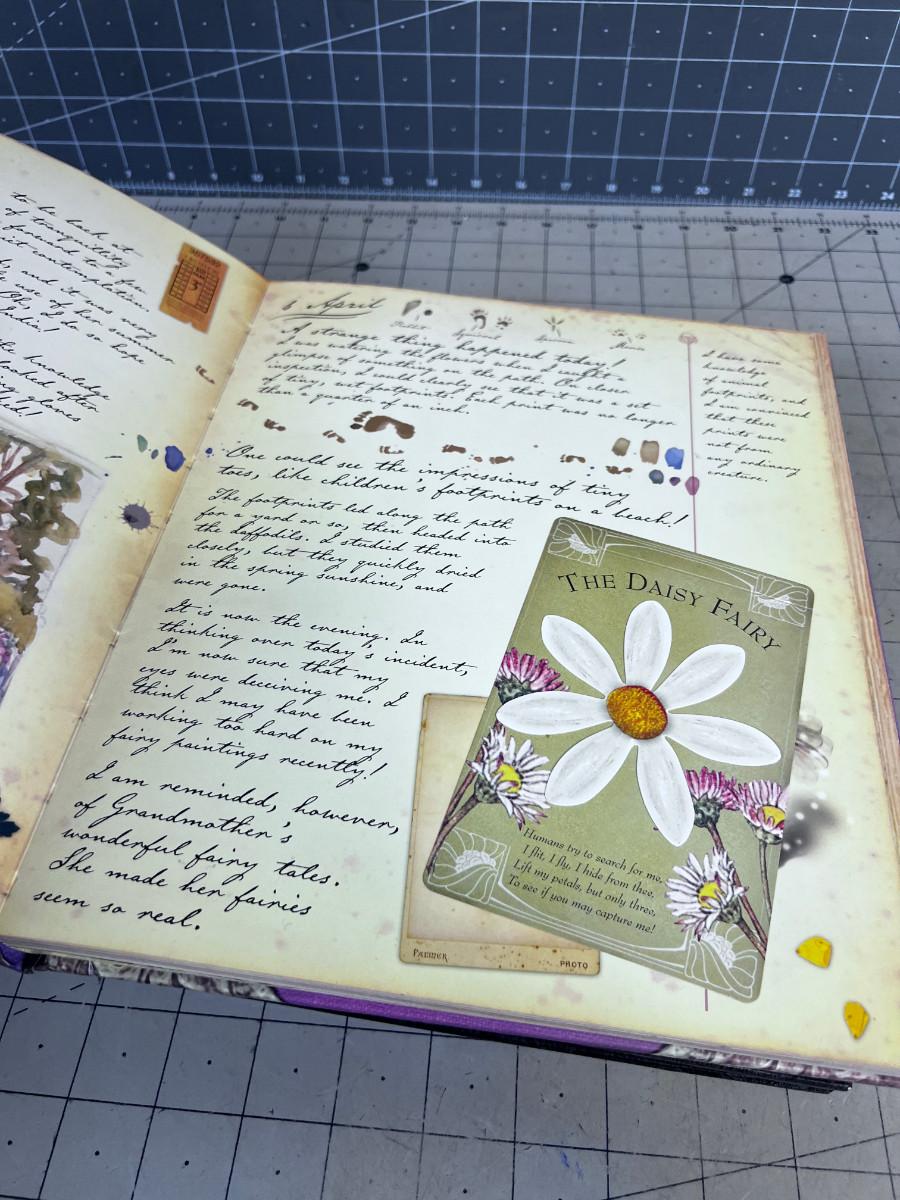 to be back at
of tranquility
forward to a few
contemplation.
and it was very
use of her summer
Oh, I do so hope
knowledge
looked after
gloves
3
6 April
A strange thing happened today!
I was watering the flowers when I caught a
glimpse of something on the path. On closer
inspection, I could clearly see that it was a set
of tiny, wet footprints! Each print was no longer
than a quarter of an inch.
I have some
knowledge
of animal
footprints, and
I am convinced
that these
prints were
not from
any ordinary
creature.
One could see the impressions of tiny
toes, like children's footprints on a beach!
The footprints led along the path
for a yard or so, then headed into
the daffodils. I studied them
closely, but they quickly dried
in the spring sunshine, and
were gone.
It is now the evening. In
thinking over today's incident,
I'm now sure that my
eyes were deceiving me. I
think I may have been
working too hard on my
fairy paintings recently!
I am reminded, however,
of Grandmother's
wonderful fairy tales.
She made her fairies
seem so real.
THE DAISY FAIRY
Humans try to search for me,
I flit, I fly, I hide from thee,
Lift my petals, but only three,
To see if you may capture me!
PALMER
PHOTO